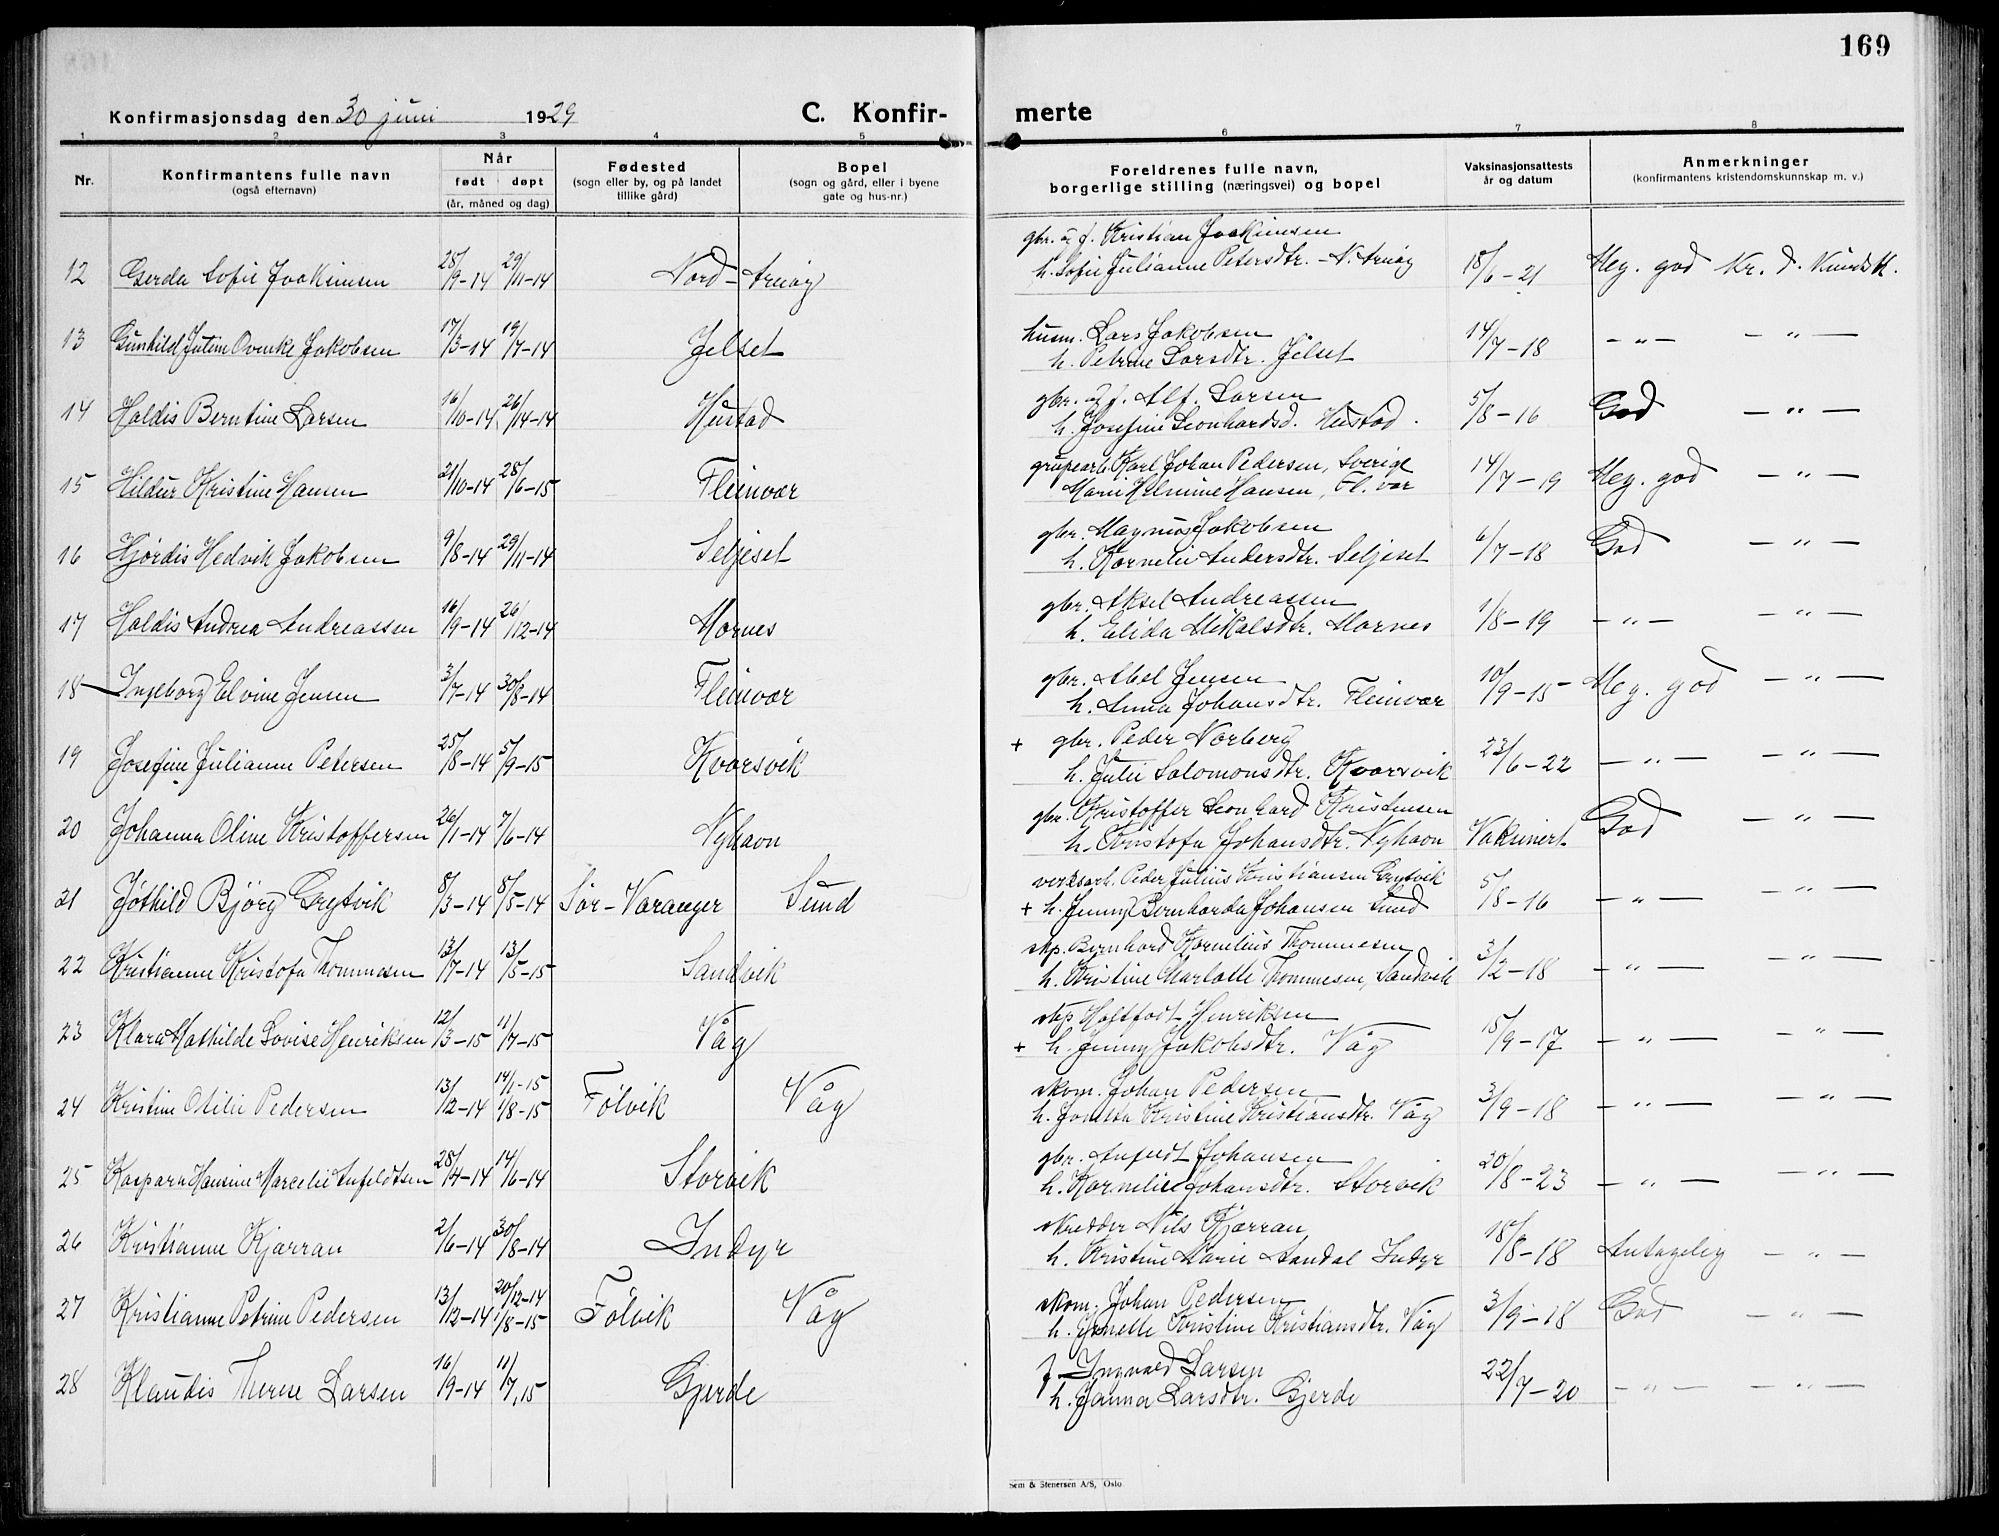 169
Konfirmasjonsdag den 30 juni 1929 C. Konfir- merte
1 2 3 4 5 6 7 8
Nr. Konfirmantens fulle navn (også efternavn) Når født døpt (år, måned og dag) Fødested (sogn eller by, og på landet tillike gård) Bopel (sogn og gård, eller i byene gate og hus-nr.) Foreldrenes fulle navn, borgerlige stilling (næringsvei) og bopel Vaksinasjonsattests år og datum Anmerkninger (konfirmantens kristendomskunnskap m. v.)
gbr. og f. Kristian Joakimsen
12 Gerda Sofie Joakimsen 25/9-14 29/11-14 Nord-Arnøy h. Sofie Julianne Petersdtr. - N. Arnøy 18/6-21 Meg. god Kr. d. Kundsk.
husm. Lars Jakobsen
13 Gunhild Jutine Ovenke Jakobsen 17/3-14 19/7-14 Jelset h. Petrine Larsdtr. Jelset 14/7-18 - " - - " -
gbr. og f. Alf. Larsen
14 Haldis Berntine Larsen 16/10-14 26/14-14 Hustad h. Josefine Leonhardsd. Hustad. 5/8-16 God - " -
grupearb. Karl Johan Pedersen, Sverige
15 Hildur Kristine Hansen 21/10-14 28/6-15 Fleinvær Marie Helmine Hansen, Fl. vær 14/7-19 Meg. god - " -
gbr. Magnus Jakobsen
16 Hjørdis Hedvik Jakobsen 9/8-14 29/11-14 Seljeset h. Kornelie Andersdtr. Seljeset 6/7-18 God - " -
gbr. Aksel Andreassen
17 Haldis Andrea Andreassen 16/9-14 26/12-14 Mornes h. Elida Mikalsdtr. Mornes 1/8-19 - " - - " -
gbr. Abel Jensen
18 Ingeborg Elvine Jensen 3/7-14 30/8-14 Fleinvær h. Anna Johansdtr. Fleinvær 10/9-15 Meg. god - " -
+ gbr. Peder Norberg
19 Josefine Julianne Petersen 25/8-14 5/9-15 Kvarsvik h. Julie Salomonsdtr. Kvarsvik 23/6-22 - " - - " -
gbr. Kristoffer Leonhard Kristensen
20 Johanna Oline Kristoffersen 26/1-14 7/6-14 Nyhavn h. Kristofa Johansdtr. Nyhavn Vaksinert. God - " -
verksarb. Peder Julius Kristiansen Grytvik
21 Jøthild Bjørg Grytvik 8/3-14 8/5-14 Sør-Varanger Sund + h. Jenny Bernharda Johansen Sund 5/8-16 - " - - " -
skp. Bernhard Kornelius Thommesen
22 Kristianne Kristofa Thommesen 13/7-14 13/5-15 Sandvik h. Kristine Charlotte Thommesen, Sandvik 3/2-18 - " - - " -
skp. Hoftfodt Henriksen
23 Klara Mathilde Lovise Henriksen 12/3-15 11/7-15 Våg + h. Jenny Jakobsdtr. Våg 15/9-17 - " - - " -
14/1-15 skom. Johan Pedersen
24 Kristine Otilie Pedersen 13/12-14 1/8-15 Følvik Våg h. Jonetta Kristine Kristiansdtr. Våg 3/9-18 - " - - " -
gbr. Anfeldt Johansen
25 Kaspara Hansine Marcelie Anfeldtsen 28/4-14 14/6-14 Storvik h. Kornelie Johansdtr. Storvik 20/8-23 - " - - " -
skredder Nils Kjærran
26 Kristianne Kjærran 2/6-14 30/8-14 Indyr h. Kristine Marie Sandal Indyr 18/8-18 Antagelig - " -
20/12-14 skom. Johan Pedersen
27 Kristianne Petrine Pedersen 13/12-14 1/8-15 Følvik Våg h. Jonette Kristine Kristiansdtr. Våg 3/9-18 God - " -
f. Ingvald Larsen
28 Klaudis Therese Larsen 16/9-14 11/7,15 Gjerde h. Janna Larsdtr. Gjerde 22/7-20 - " - - " -
Sem & Stenersen A/S, Oslo